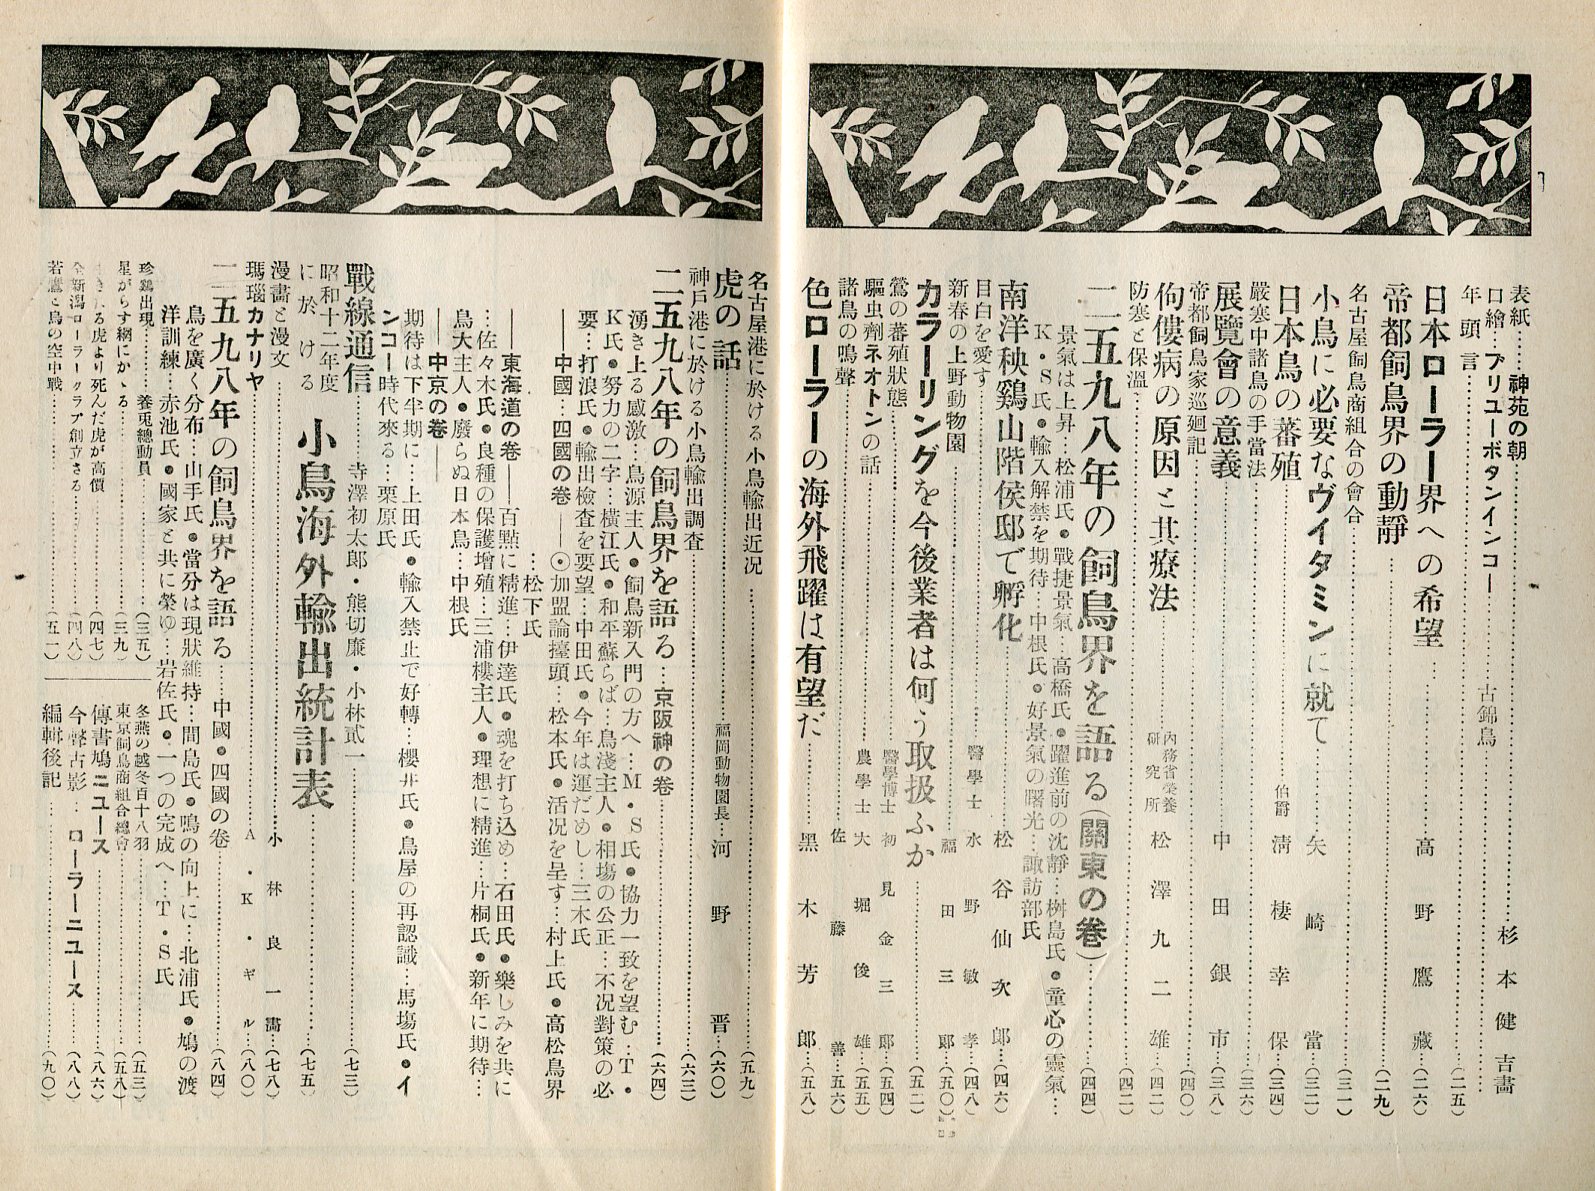 表紙……神苑の朝……………杉本健吉畵
口繪……ブリユーボタンインコー………古錦鳥
年頭言………………………(二五)
日本ローラー界への希望………高野鷹藏…(二六)
帝都飼鳥界の動靜………(二九)
名古屋飼鳥商組合の會合………(三一)
小鳥に必要なヴイタミンに就て………矢崎當…(三二)
日本鳥の蕃殖………伯爵 淸棲幸保…(三四)
嚴寒中諸鳥の手當法………(三六)
展覽會の意義………中田銀市…(三八)
帝都飼鳥家巡廻記………(四〇)
佝僂病の原因と其療法………內務省榮養硏究所 松澤九二雄…(四二)
防寒と保溫………(四二)
二五九八年の飼鳥界を語る(關東の卷)………(四四)
景氣は上昇…松浦氏・戰捷景氣…高橋氏・躍進前の沈靜…桝島氏・童心の靈氣…
K・S氏・輸入解禁を期待…中根氏・好景氣の曙光…諏訪部氏
南洋秧鷄山階侯邸で孵化………松谷仙次郎…(四六)
目白を愛す………醫學士 水野敏孝…(四八)
新春の上野動物園………福田三郎…(五〇)
カラーリングを今後業者は何う取扱ふか………(五二)
鶯の蕃殖狀態………醫學博士 初見金三郎…(五四)
驅虫劑ネオトンの話………農學士 大堀俊雄…(五五)
諸鳥の鳴聲………佐藤善…(五六)
色ローラーの海外飛躍は有望だ………黑木芳郎…(五八)
名古屋港に於ける小鳥輸出近況………(五九)
虎の話………福岡動物園長 河野晋…(六〇)
神戶港に於ける小鳥輸出調査………(六三)
二五九八年の飼鳥界を語る…京阪神の卷………(六四)
湧き上る感激…鳥源主人・飼鳥新入門の方へ…M・S氏・協力一致を望む…T・
K氏・努力の二字…橫江氏・和平蘇らば…鳥淺主人・相場の公正…不況對策の必
要…打浪氏・輸出檢査を要望…中田氏・今年は運だめし…三木氏
――中國…四國の卷――◉加盟論擡頭…松本氏・活況を呈す…村上氏・高松鳥界
…松下氏
――東海道の卷――百點に精進…伊達氏・魂を打ち込め…石田氏・樂しみを共に
…佐々木氏・良種の保護增殖…三浦樓主人・理想に精進…片桐氏・新年に期待…
鳥大主人・廢らぬ日本鳥…中根氏
――中京の卷――
期待は下半期に…上田氏・輸入禁止で好轉…櫻井氏・鳥屋の再認識…馬場氏・イ
ンコー時代來る…栗原氏
戰線通信………寺澤初太郎・熊切廉・小林貳一………(七三)
昭和十二年度に於ける 小鳥海外輸出統計表………(七五)
漫畵と漫文………小林良一畵…(七八)
瑪瑙カナリヤ………A・K・ギル…(八〇)
二五九八年の飼鳥界を語る…中國・四國の卷………(八四)
鳥を廣く分布…山手氏・當分は現狀維持…間島氏・鳴の向上に…北浦氏・鳩の渡
洋訓練…赤池氏・國家と共に榮ゆ…岩佐氏・一つの完成へ…T・S氏
珍鷄出現………養兎總動員………(三五)
星がらす網にかゝる………(三九)
生きたる虎より死んだ虎が高價………(四七)
全新潟ローラークラブ創立さる………(四八)
若鷹と鳥の空中戰………(五一)
冬燕の越冬百十八羽………(五三)
東京飼鳥商組合總會………(五八)
傳書鳩ニユース………(八六)
今弊古影…ローラーニユース………(八八)
編輯後記………(九〇)